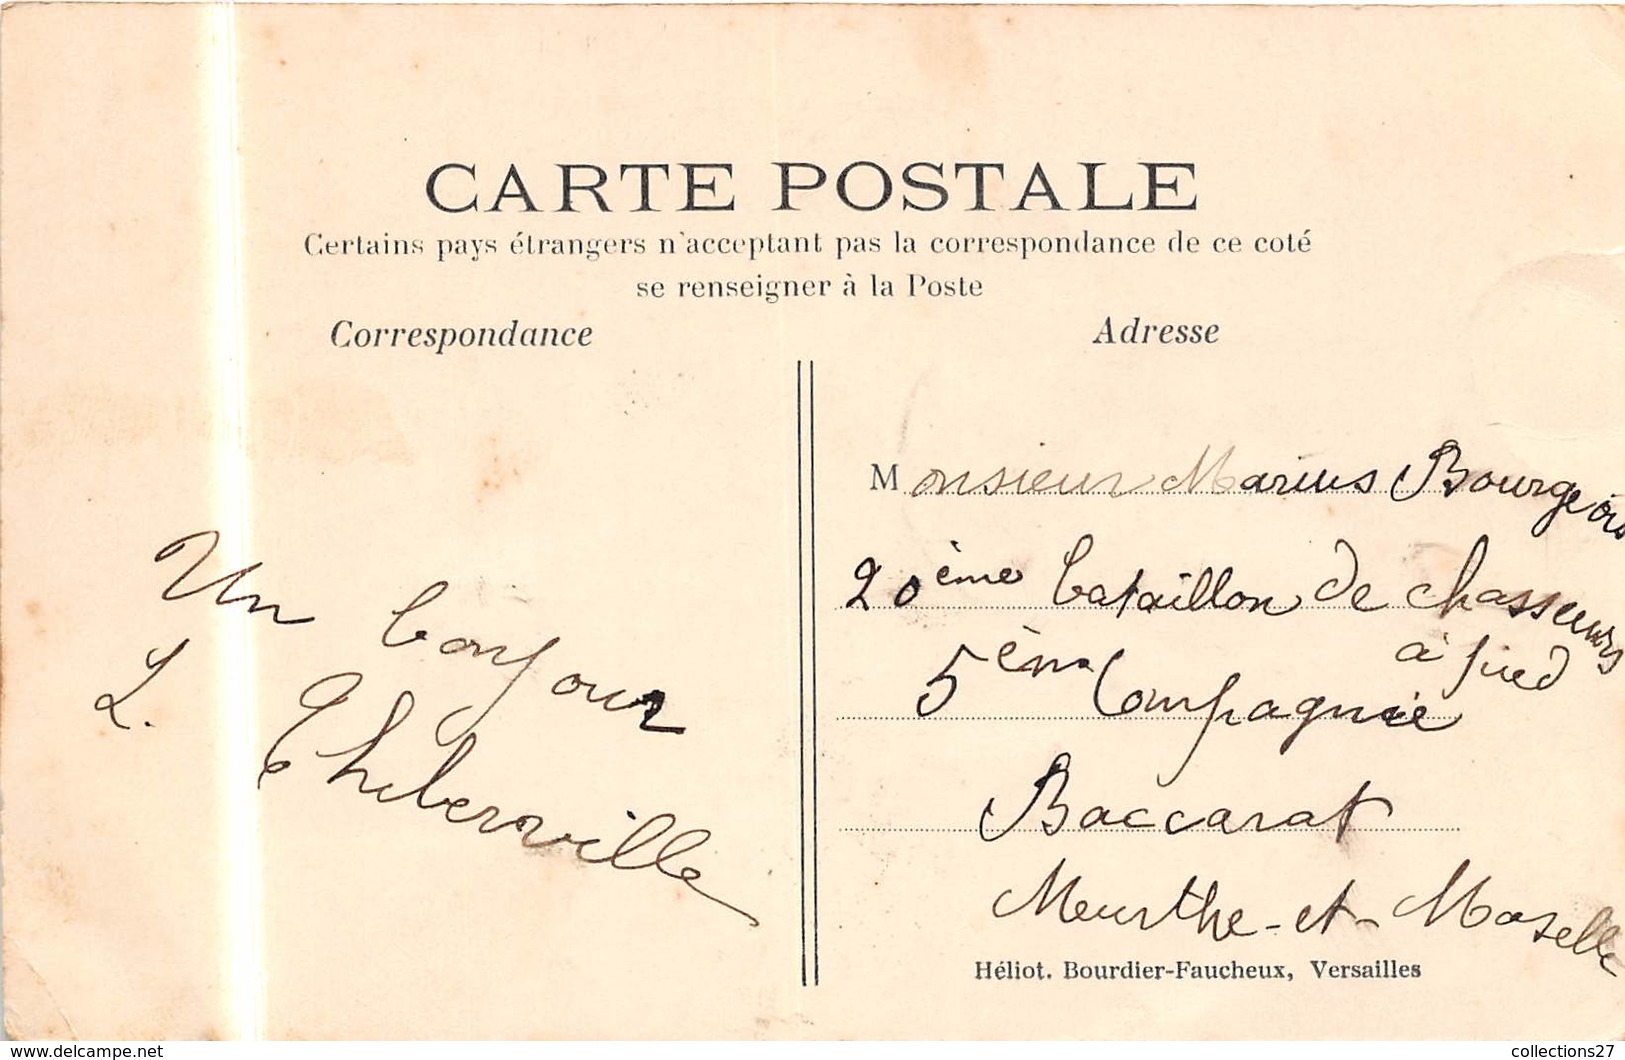 CARTE POSTALE
Certains pays étrangers n'acceptant pas la correspondance de ce coté
se renseigner à la Poste
Correspondance
Adresse
Un bonjour
L. Thiberville
Monsieur Marius Bourgeois
20ème bataillon de chasseurs
à pied
5ème Compagnie
Baccarat
Meurthe-et-Moselle
Héliot. Bourdier-Faucheux, Versailles
delcampe.net
collections27